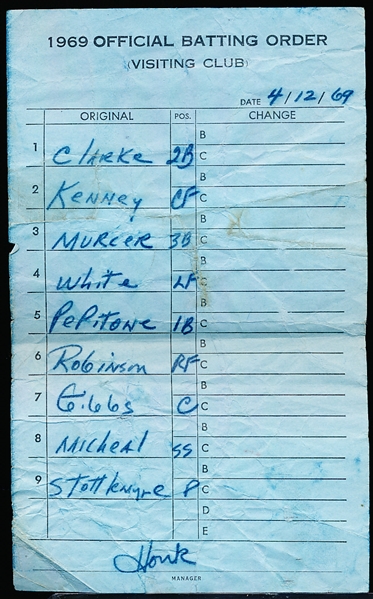 1969 OFFICIAL BATTING ORDER
(VISITING CLUB)
DATE 4/12/69
ORIGINAL POS. CHANGE
B
1 Clarke 2B C
B
2 Kenney CF C
B
3 Murcer 3B C
B
4 White LF C
B
5 Pepitone 1B C
B
6 Robinson RF C
B
7 Gibbs C C
B
8 Micheal SS C
B
9 Stottlemyre P C
D
E
Houk
MANAGER